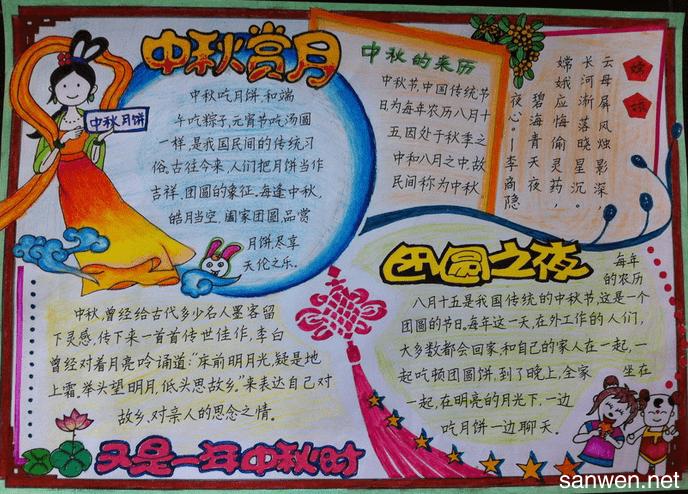 中秋赏月
中秋月饼
中秋吃月饼,和端
午吃粽子,元宵节吃汤圆
一样,是我国民间的传统习
俗。古往今来,人们把月饼当作
吉祥、团圆的象征,每逢中秋,
皓月当空,阖家团圆,品尝
月饼尽享
天伦之乐。
中秋的来历
中秋节,中国传统节
日为每年农历八月十
五因处于秋季之
中和八月之中,故
民间称为中秋
嫦
娥
云母屏风烛影深,
长河渐落晓星沉。
嫦娥应悔偷灵药,
碧海青天夜
夜心。—李商隐
中秋,曾经给古代多少名人墨客留
下灵感,传下来一首首传世佳作,李白
曾经对着月亮吟诵道:“床前明月光,疑是地
上霜。举头望明月,低头思故乡,”来表达自己对
故乡、对亲人的思念之情。
团圆之夜
每年
的农历
八月十五是我国传统的中秋节,这是一个
团圆的节日,每年这一天,在外工作的人们,
大多数都会回家,和自己的家人在一起,一
起吃顿团圆饼,到了晚上,全家 坐在
一起,在明亮的月光下,一边
吃月饼一边聊天。
又是一年中秋时
sanwen.net